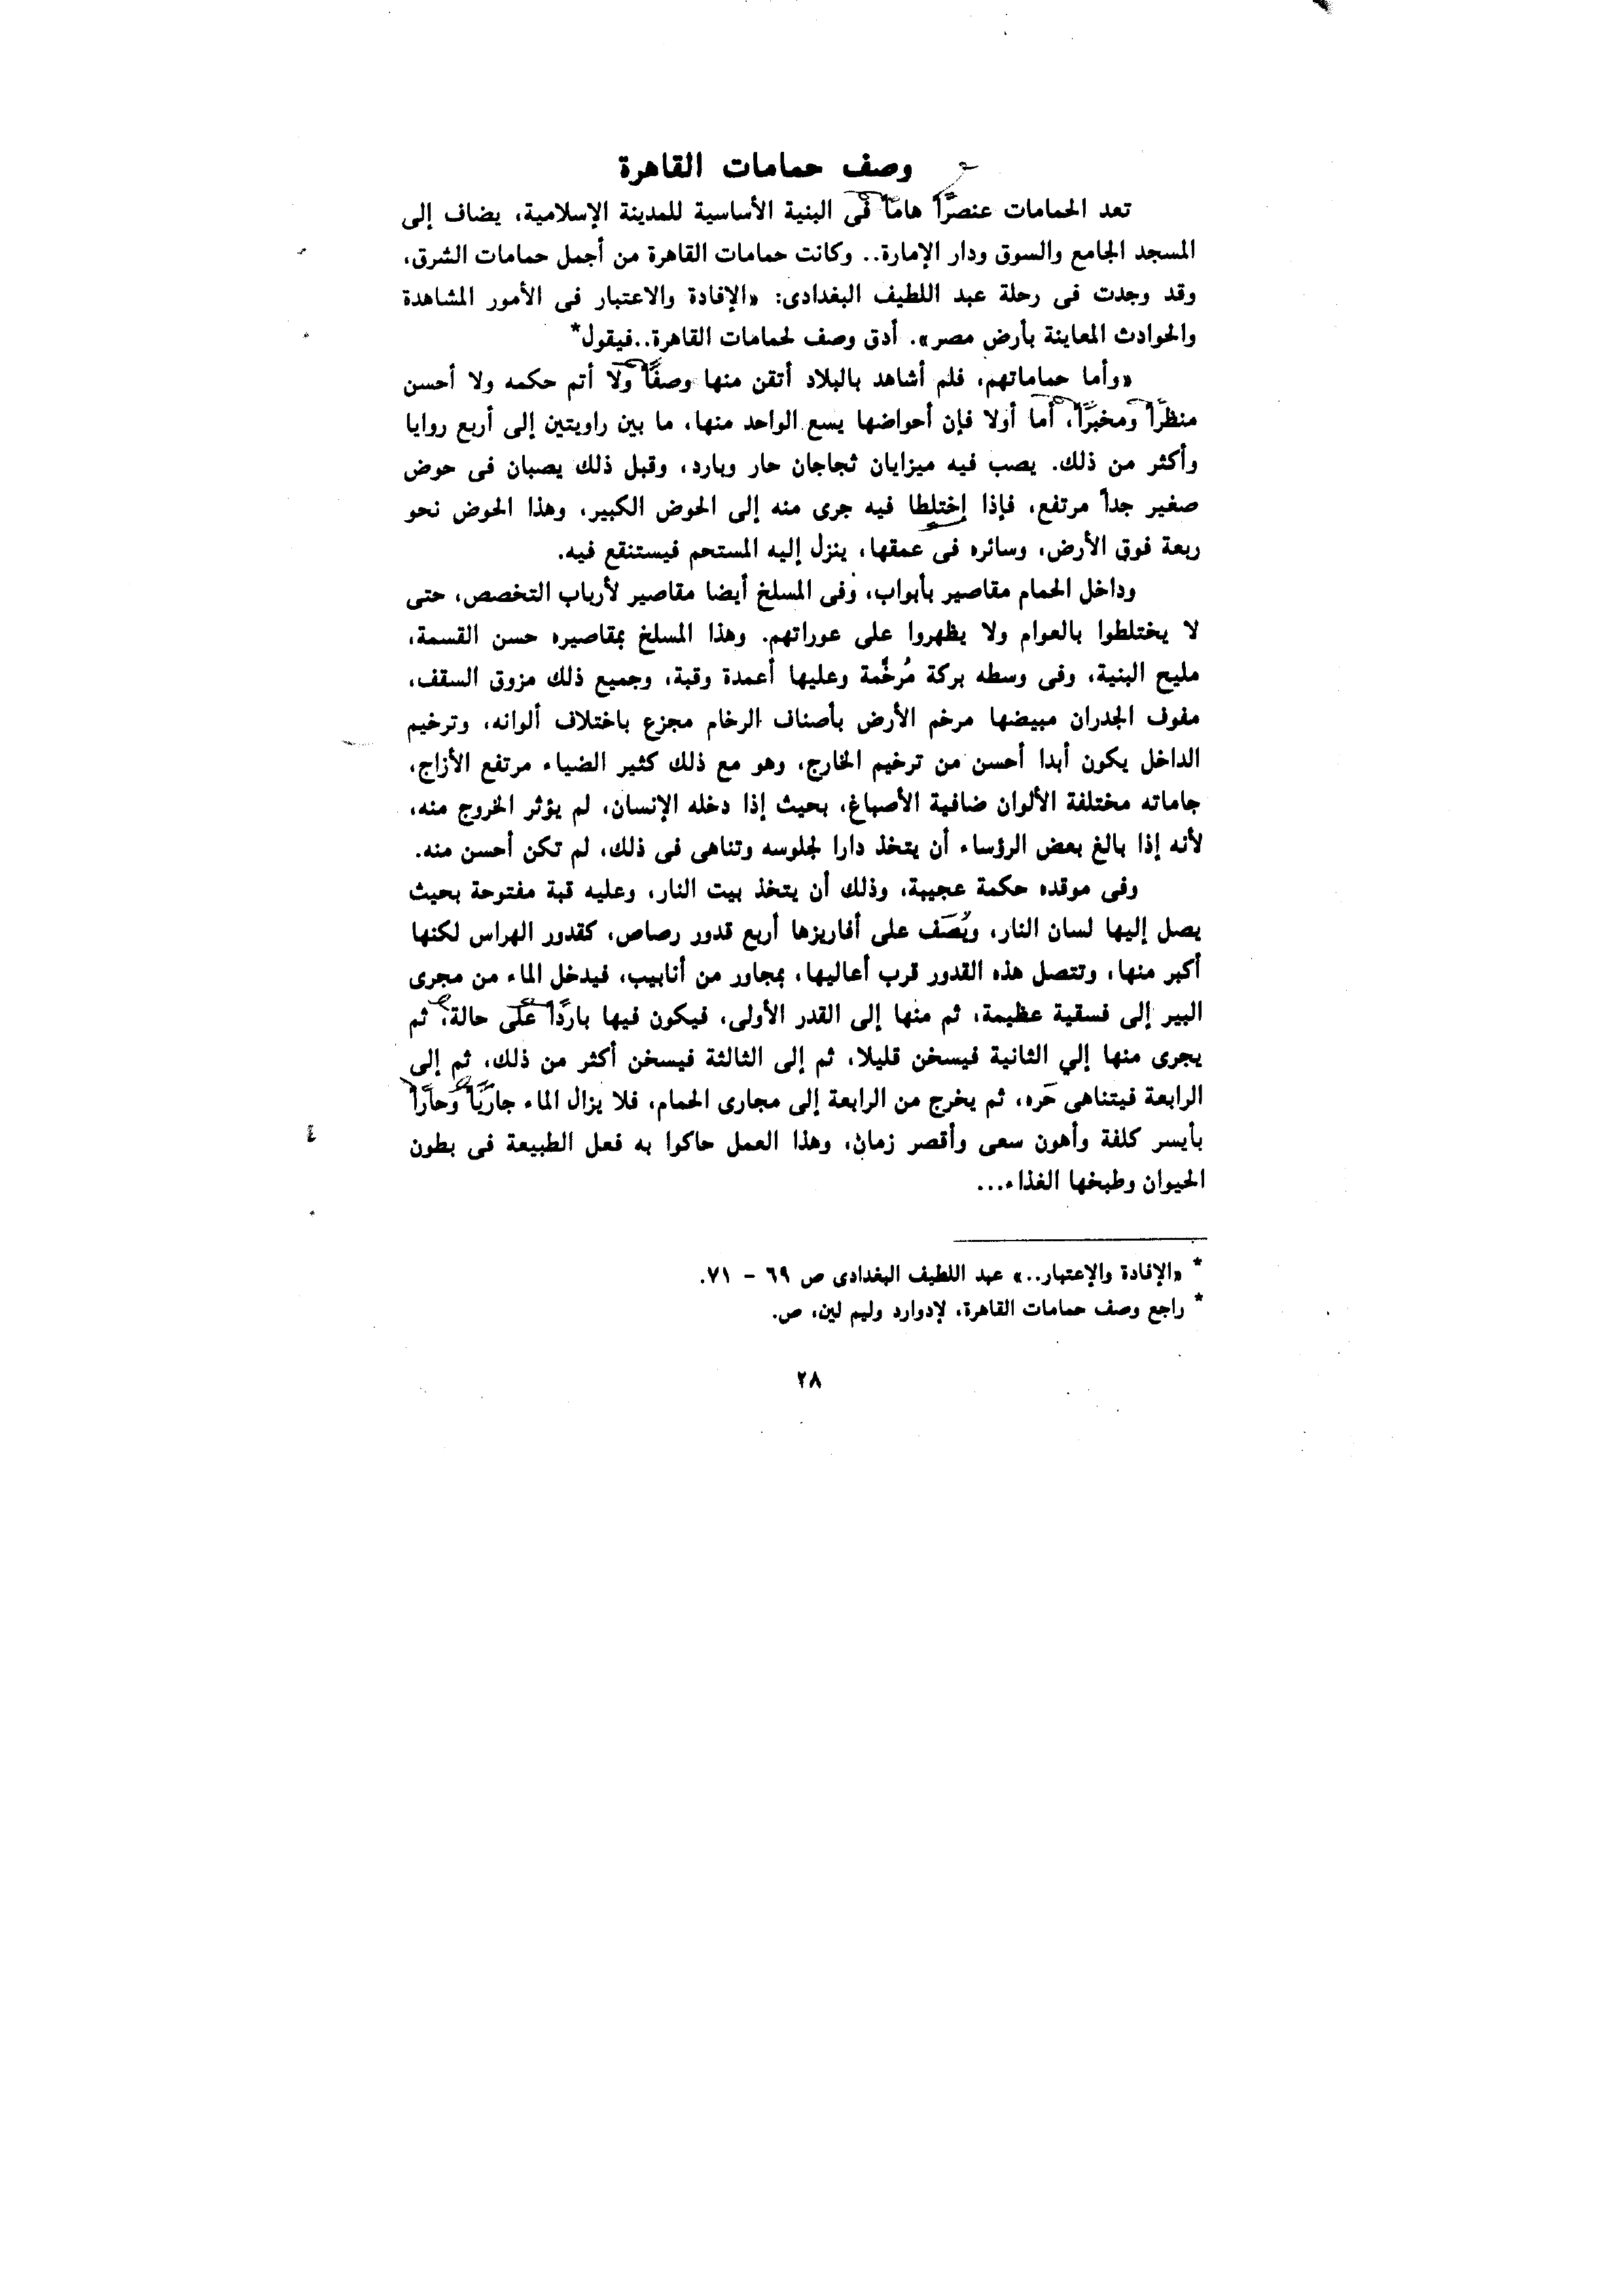 وصف حمامات القاهرة
تعد الحمامات عنصرًا هامًا فى البنية الأساسية للمدينة الإسلامية، يضاف إلى
المسجد الجامع والسوق ودار الإمارة.. وكانت حمامات القاهرة من أجمل حمامات الشرق،
وقد وجدت فى رحلة عبد اللطيف البغدادى: «الإفادة والاعتبار فى الأمور المشاهدة
والحوادث المعاينة بأرض مصر». أدق وصف لحمامات القاهرة..فيقول*
«وأما حماماتهم، فلم أشاهد بالبلاد أتقن منها وصفًا ولا أتم حكمه ولا أحسن
منظرًا ومخبرًا، أما أولا فإن أحواضها يسع الواحد منها، ما بين راويتين إلى أربع روايا
وأكثر من ذلك. يصب فيه ميزابان ثجاجان حار وبارد، وقبل ذلك يصبان فى حوض
صغير جداً مرتفع، فإذا إختلطا فيه جرى منه إلى الحوض الكبير، وهذا الحوض نحو
ربعة فوق الأرض، وسائره فى عمقها، ينزل إليه المستحم فيستنقع فيه.
وداخل الحمام مقاصير بأبواب، وفى المسلخ أيضا مقاصير لأرباب التخصص، حتى
لا يختلطوا بالعوام ولا يظهروا على عوراتهم. وهذا المسلخ بمقاصيره حسن القسمة،
مليح البنية، وفى وسطه بركة مُرخَّمة وعليها أعمدة وقبة، وجميع ذلك مزوق السقف،
مفوف الجدران مبيضها مرخم الأرض بأصناف الرخام مجزع باختلاف ألوانه، وترخيم
الداخل يكون أبدا أحسن من ترخيم الخارج، وهو مع ذلك كثير الضياء مرتفع الأزاج،
جاماته مختلفة الألوان ضافية الأصباغ، بحيث إذا دخله الإنسان، لم يؤثر الخروج منه،
لأنه إذا بالغ بعض الرؤساء أن يتخذ دارا لجلوسه وتناهى فى ذلك، لم تكن أحسن منه.
وفى موقده حكمة عجيبة، وذلك أن يتخذ بيت النار، وعليه قبة مفتوحة بحيث
يصل إليها لسان النار، ويُصَف على أفاريزها أربع قدور رصاص، كقدور الهراس لكنها
أكبر منها، وتتصل هذه القدور قرب أعاليها، بمجاور من أنابيب، فيدخل الماء من مجرى
البير إلى فسقية عظيمة، ثم منها إلى القدر الأولى، فيكون فيها باردًا على حالة، ثم
يجرى منها إلي الثانية فيسخن قليلا، ثم إلى الثالثة فيسخن أكثر من ذلك، ثم إلى
الرابعة فيتناهى حَره، ثم يخرج من الرابعة إلى مجارى الحمام، فلا يزال الماء جاريًا وَحارًا
بأيسر كلفة وأهون سعى وأقصر زمان، وهذا العمل حاكوا به فعل الطبيعة فى بطون
الحيوان وطبخها الغذاء...
* «الإفادة والإعتبار..» عبد اللطيف البغدادى ص ٦٩ – ٧١.
* راجع وصف حمامات القاهرة، لإدوارد وليم لين، ص.
٢٨